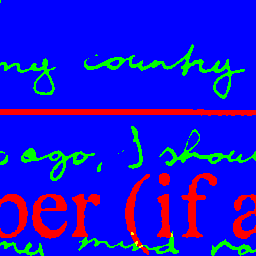 my country
ago, I shou
ber (if a
my mind no